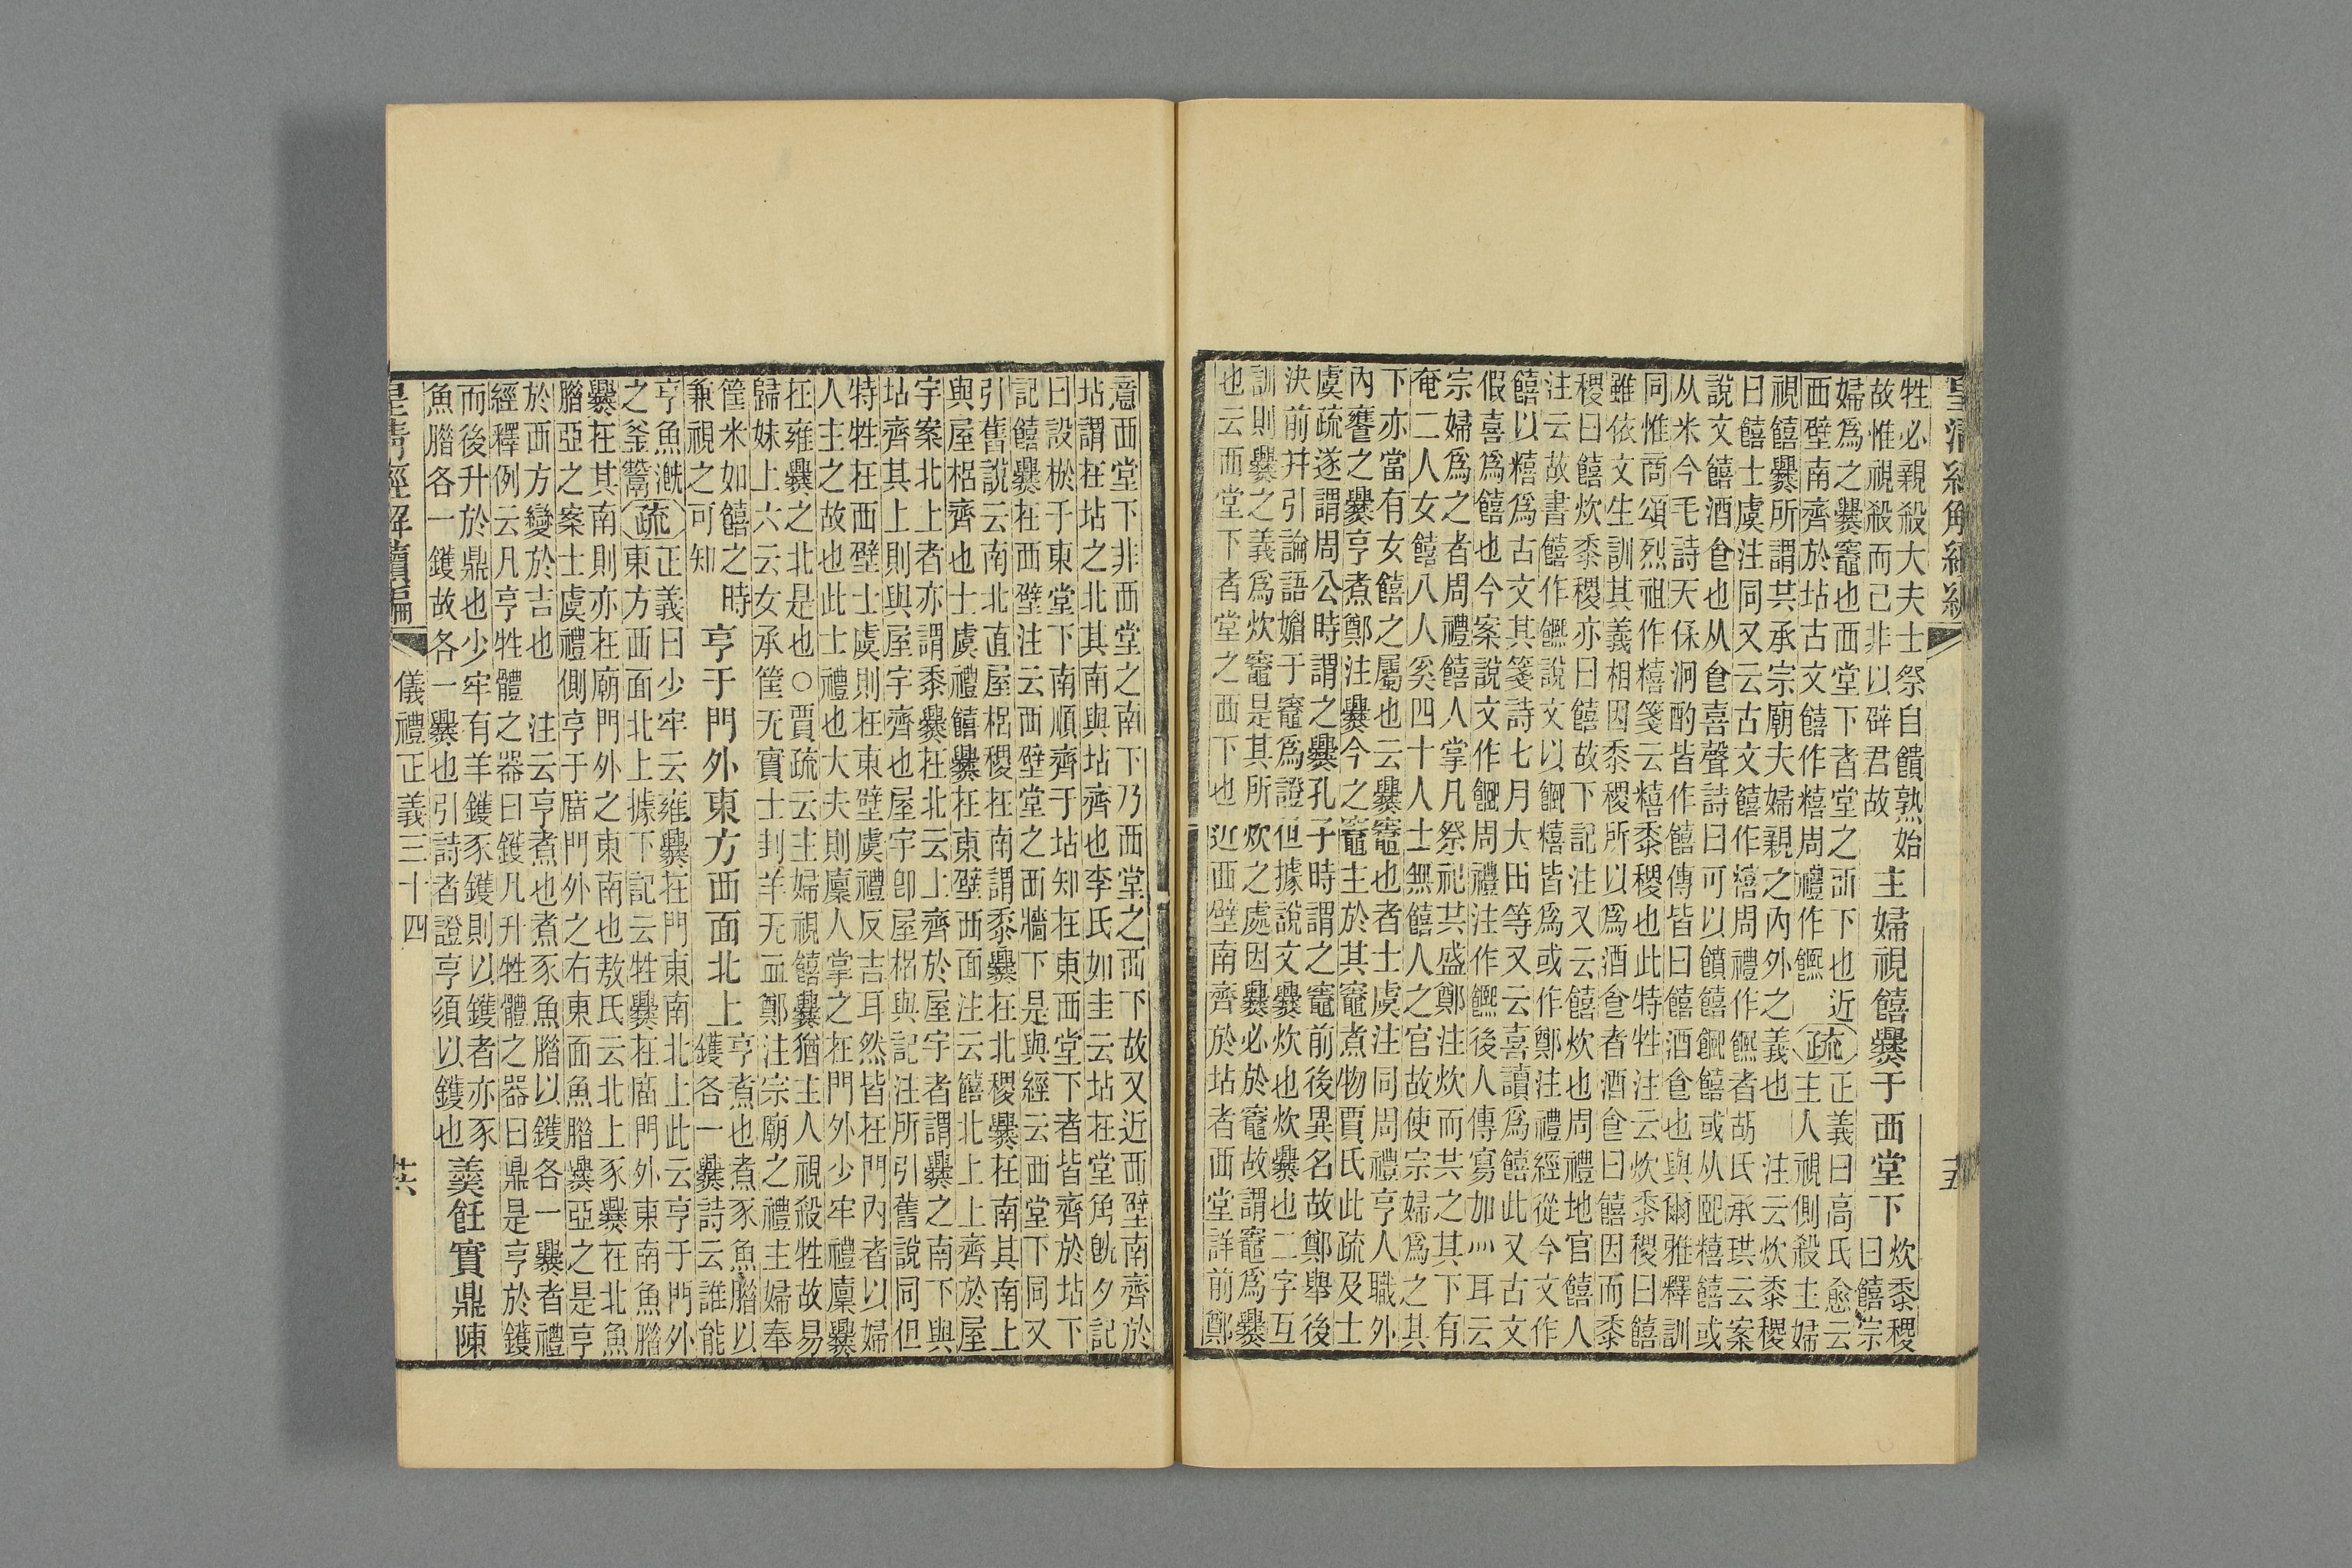 牲必親殺大夫士祭自饋熟始
故惟視殺而已非以辟君故
主婦視饎爨于西堂下
炊黍稷
曰饎宗
婦爲之爨竈也西堂下者堂之西下也近
西壁南齊於坫古文饎作糦周禮作䭒
疏
正義曰高氏愈云
主人視側殺主婦
視饎爨所謂共承宗廟夫婦親之內外之義也 注云炊黍稷
曰饎士虞注同又云古文饎作糦周禮作䭒者胡氏承珙云案
說文饎酒食也从食喜聲詩曰可以饋饎𩜱饎或从配糦饎或
从米今毛詩天保泂酌皆作饎傳皆曰饎酒食也與爾雅釋訓
同惟商頌烈祖作糦箋云糦黍稷也此特牲注云炊黍稷曰饎
雖依文生訓其義相因黍稷所以爲酒食者酒食曰饎因而黍
稷曰饎炊黍稷亦曰饎故下記注又云饎炊也周禮地官饎人
注云故書饎作䭒說文以𩜱糦皆爲或作鄭注禮經從今文作
饎以糦爲古文其箋詩七月大田等又云喜讀爲饎此又古文
假喜爲饎也今案說文作𩜱周禮注作䭒後人傳寫加灬耳云
宗婦爲之者周禮饎人掌凡祭祀共盛鄭注炊而共之其下有
奄二人女饎八人奚四十人士無饎人之官故使宗婦爲之其
下亦當有女饎之屬也云爨竈也者士虞注同周禮亨人職外
內饔之爨亨煮鄭注爨今之竈主於其竈煮物賈氏此疏及士
虞疏遂謂周公時謂之爨孔子時謂之竈前後異名故鄭舉後
決前幷引論語媚于竈爲證但據說文爨炊也炊爨也二字互
訓則爨之義爲炊竈是其所炊之處因爨必於竈故謂竈爲爨
也云西堂下者堂之西下也近西壁南齊於坫者西堂詳前鄭
意西堂下非西堂之南下乃西堂之西下故又近西壁南齊於
坫謂在坫之北其南與坫齊也李氏如圭云坫在堂角旣夕記
曰設棜于東堂下南順齊于坫知在東西堂下者皆齊於坫下
記饎爨在西壁注云西壁堂之西牆下是與經云西堂下同又
引舊說云南北直屋梠稷在南謂黍爨在北稷爨在南其南上
與屋梠齊也士虞禮饎爨在東壁西面注云饎北上上齊於屋
宇案北上者亦謂黍爨在北云上齊於屋宇者謂爨之南下與
坫齊其上則與屋宇齊也屋宇卽屋梠與記注所引舊說同但
特牲在西壁士虞則在東壁虞禮反吉耳然皆在門內者以婦
人主之故也此士禮也大夫則廩人掌之在門外少牢禮廩爨
在雍爨之北是也○賈疏云主婦視饎爨猶主人視殺牲故易
歸妹上六云女承筐无實士刲羊无血鄭注宗廟之禮主婦奉
筐米如饎之時
兼視之可知
亨于門外東方西面北上
亨煮也煮豕魚腊以
鑊各一爨詩云誰能
亨魚漑
之釜鬵
疏
正義曰少牢云雍爨在門東南北上此云亨于門外
東方西面北上據下記云牲爨在廟門外東南魚腊
爨在其南則亦在廟門外之東南也敖氏云北上豕爨在北魚
腊亞之案士虞禮側亨于廟門外之右東面魚腊爨亞之是亨
於西方變於吉也 注云亨煮也煮豕魚腊以鑊各一爨者禮
經釋例云凡亨牲體之器曰鑊凡升牲體之器曰鼎是亨於鑊
而後升於鼎也少牢有羊鑊豕鑊則以鑊者亦豕
魚腊各一鑊故各一爨也引詩者證亨須以鑊也
羹飪實鼎陳
皇清經解續編
儀禮正義三十四